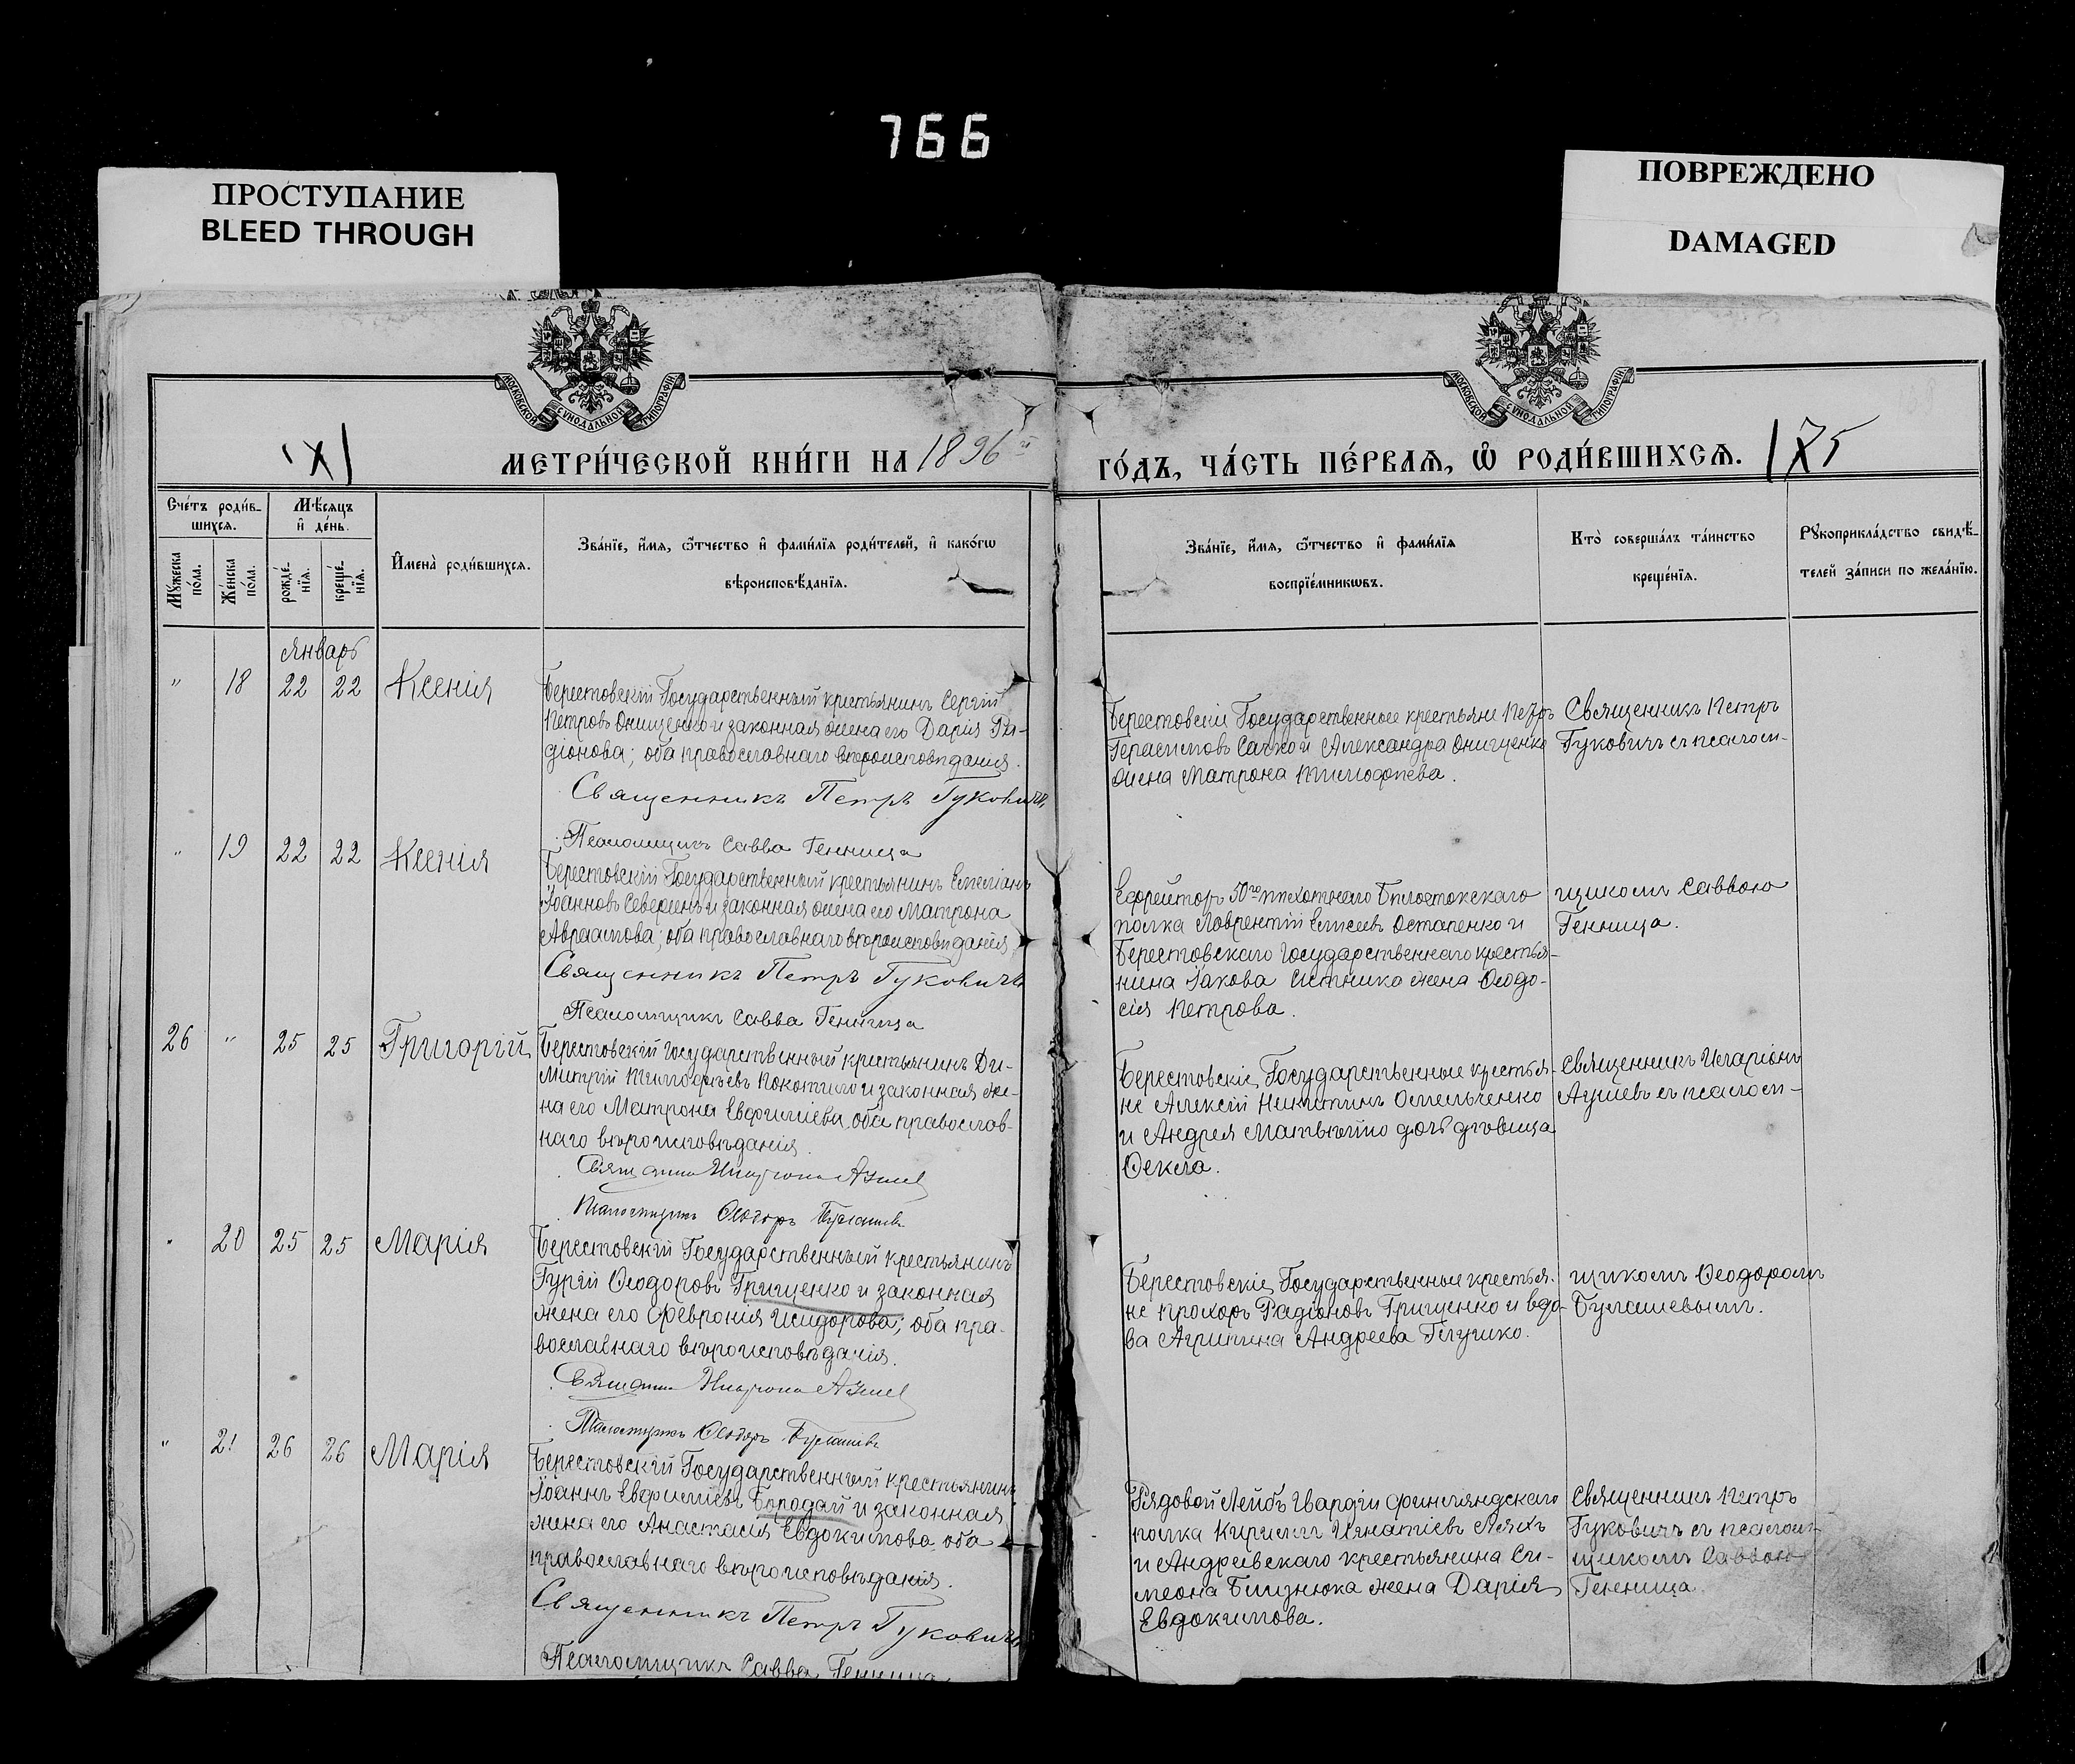 766
ПРОСТУПАНИЕ
BLEED THROUGH
ПОВРЕЖДЕНО
DAMAGED
МОСКОВСКОЙ СѴНОДАЛЬНОЙ ТИПОГРАФІИ
МОСКОВСКОЙ СѴНОДАЛЬНОЙ ТИПОГРАФІИ
МЕТРИ́ЧЕСКОЙ КНИ́ГИ НА 1896 й
ГО́ДЪ, ЧА́СТЬ ПЕ́РВАѦ, Ѡ҆ РОДИ́ВШИХСѦ. 175
Сче́тъ роди́в-
шихсѧ.
Мѣ́сѧцъ
и҆ де́нь.
Мꙋ́жеска
по́ла.
Же́нска
по́ла.
рожде́-
нїѧ.
креще́-
нїѧ.
И҆мена̀ роди́вшихсѧ.
Зва́нїе, и҆́мѧ, ѻ҆́тчество и҆ фами́лїѧ роди́телей, и҆ како́гѡ
вѣроисповѣ́данїѧ.
Зва́нїе, и҆́мѧ, ѻ҆́тчество и҆ фами́лїѧ
воспрїе́мникѡвъ.
Кто̀ соверша́лъ та́инство
креще́нїѧ.
Рꙋкоприкла́дство свидѣ́-
телей за́писи по жела́нїю.
Январь
" 18 22 22 Ксенія
Берестовскій Государственный крестьянинъ Сергій
Петровъ Онищенко и законная жена его Дарія Ра-
діонова; оба православнаго вѣроисповѣданія.
Священникъ Петръ Гуковичъ
Псаломщикъ Савва Генница
Берестовскіе Государственные крестьяне Петръ
Герасимовъ Сачко и Александра Онищенко
жена Матрона Тимофѣева.
Священникъ Петръ
Гуковичъ съ псалом-
" 19 22 22 Ксенія
Берестовскій Государственный крестьянинъ Емеліанъ
Іоанновъ Северинъ и законная жена его Матрона
Авраамова; оба православнаго вѣроисповѣданія.
Священникъ Петръ Гуковичъ
Псаломщикъ Савва Генница
Ефрейторъ 50го пѣхотнаго Бѣлостокскаго
полка Лаврентій Елисеевъ Остапенко и
Берестовскаго Государственнаго крестья-
нина Іакова жена Ѳеодо-
сія Петрова.
щикомъ Саввою
Генница.
26 " 25 25 Григорій
Берестовскій Государственный крестьянинъ Ди-
митрій Тимофѣевъ Покотило и законная же-
на его Матрона Евфиміева, оба православ-
наго вѣроисповѣданія.
Псаломщикъ Ѳеодоръ Булашевъ
Берестовскіе Государственные крестья-
не Алексій Никитинъ Омельченко
и Андрея Матвѣйко дочь дѣвица
Ѳекла.
Священникъ Иларіонъ
съ псалом-
" 20 25 25 Марія
Берестовскій Государственный крестьянинъ
Гурій Ѳеодоровъ Грищенко и законная
жена его Февронія Исидорова; оба пра-
вославнаго вѣроисповѣданія.
Псаломщикъ Ѳеодоръ Булашевъ
Берестовскіе Государственные крестья-
не Прохоръ Радіоновъ Грищенко и вдо-
ва Агрипина Андреева Глушко.
щикомъ Ѳеодоромъ
Булашевымъ.
" 21 26 26 Марія
Берестовскій Государственный крестьянинъ
Іоаннъ Евфиміевъ Бородай и законная
жена его Анастасія Евдокимова, оба
православнаго вѣроисповѣданія.
Священникъ Петръ Гуковичъ
Псаломщикъ Савва Генница
Рядовой Лейбъ Гвардіи Финляндскаго
полка Кирилъ Игнатіевъ Ляхъ
и Андреевскаго крестьянина Си-
меона Близнюка жена Дарія
Евдокимова.
Священникъ Петръ
Гуковичъ съ псалом-
щикомъ Саввою
Генница.